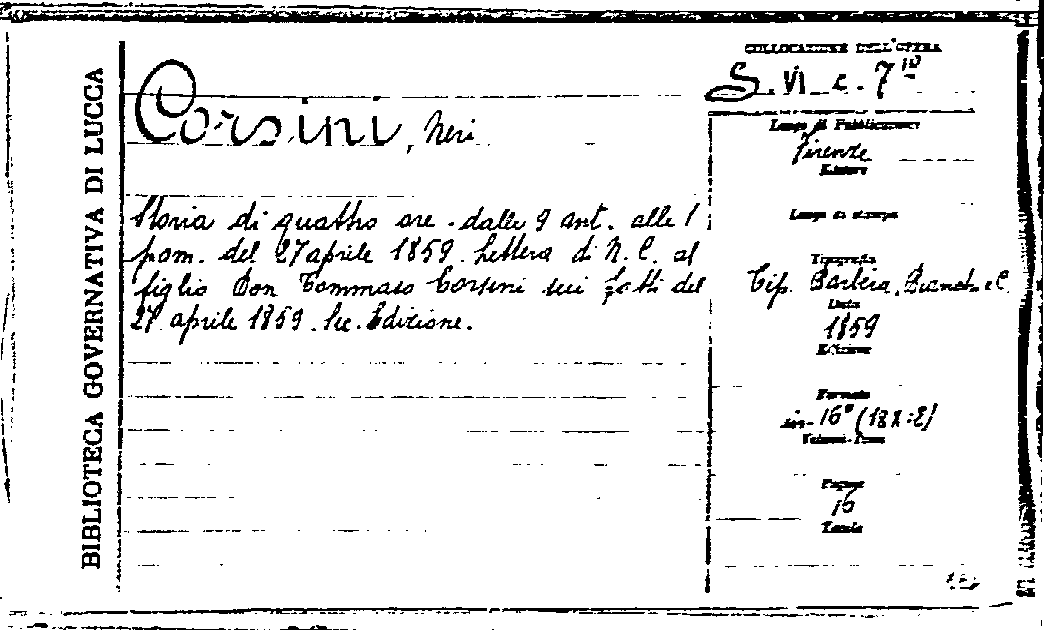 BIBLIOTECA GOVERNATIVA DI LUCCA
Corsini, Neri
Storia di quattro ore - dalle 9 ant. alle 1
pom. del 27 aprile 1859. Lettera di N. C. al
figlio Don Tommaso Corsini sui fatti del
27 aprile 1859. Sec. Edizione.
COLLOCAZIONE DELL'OPERA
S. VI. c. 7
Luogo di Pubblicazione
Firenze
Editore
Luogo di stampa
Tipografia
Tip. Barbèra, Bianchi e C.
Data
1859
Edizione
Formato
in-16°
Volumi-Tomo
Pagine
16
Tavole